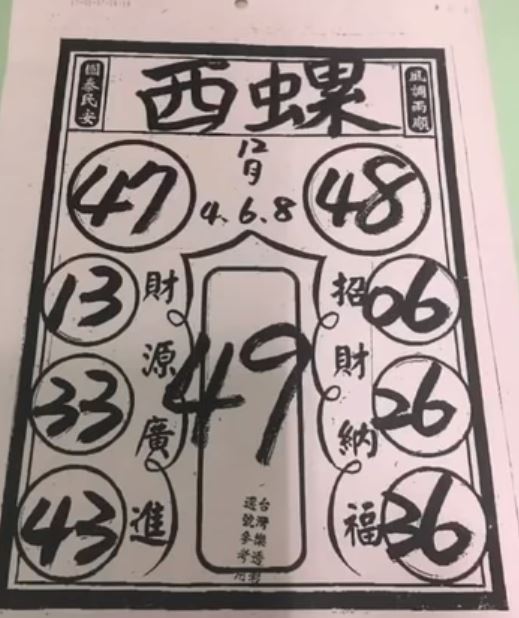 國泰民安
西螺
風調雨順
12月
4.6.8
47
48
13
06
33
26
43
36
49
財源廣進
招財納福
台灣樂透彩
選號參考用